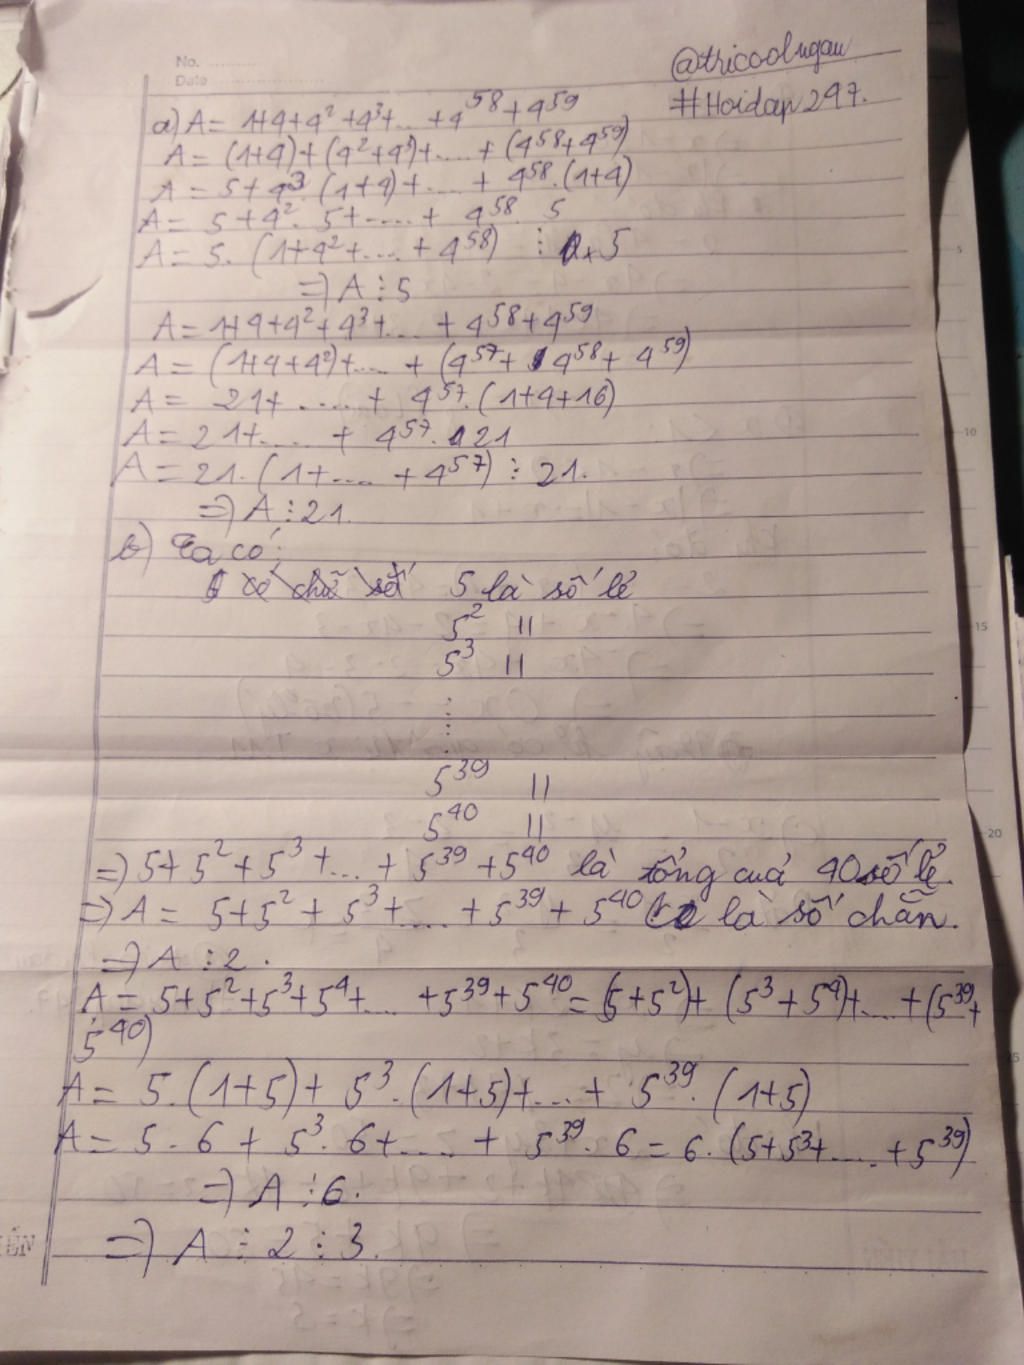 No. ............
Date ........................
@tricoolngau
#Hoidap247.
a) A = 1+4+4² +4³+... +4⁵⁸+4⁵⁹
A = (1+4)+(4²+4³)+.... + (4⁵⁸+4⁵⁹)
A = 5+4³.(1+4)+.... + 4⁵⁸.(1+4)
A = 5+4². 5+..... + 4⁵⁸. 5
A = 5. (1+4²+.... +4⁵⁸) ⋮ 5
=) A ⋮ 5
A = 1+4+4²+4³+.... + 4⁵⁸+4⁵⁹
A = (1+4+4²)+.... + (4⁵⁷+ 4⁵⁸+ 4⁵⁹)
A = 21+ ..... + 4⁵⁷.(1+4+16)
A = 21+.... + 4⁵⁷. 21
A = 21. (1+.... +4⁵⁷) ⋮ 21.
=) A ⋮ 21.
b) Ta có:
có chữ số 5 là số lẻ
5² 11
5³ 11
⋮
5³⁹ 11
5⁴⁰ 11
=) 5+ 5² + 5³ +... + 5³⁹ +5⁴⁰ là tổng cuả 40 số lẻ.
=) A = 5+5² + 5³+.... +5³⁹+ 5⁴⁰ là số chẵn.
=) A ⋮ 2 .
A = 5+5²+5³+5⁴+... +5³⁹+5⁴⁰ = (5+5²)+ (5³+5⁴)+.... + (5³⁹+
5⁴⁰)
A = 5.(1+5)+ 5³.(1+5)+... + 5³⁹. (1+5)
A = 5. 6 + 5³. 6+.... + 5³⁹. 6 = 6. (5+5³+..... +5³⁹)
=) A ⋮ 6.
=) A ⋮ 2 ⋮ 3.